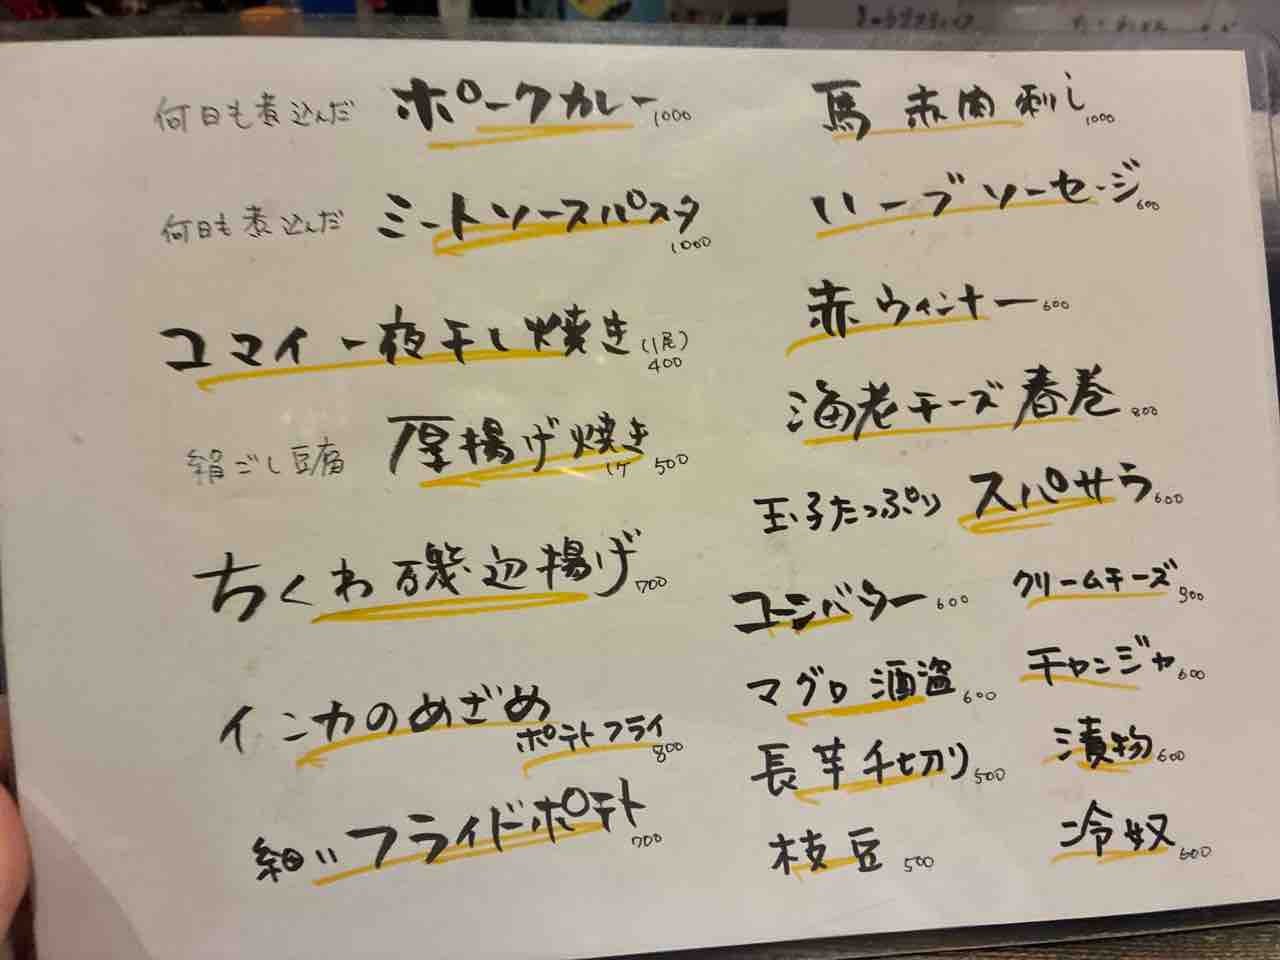 何日も煮込んだ ポークカレー 1000
何日も煮込んだ ミートソースパスタ 1000
コマイ一夜干し焼き (1尾) 400
絹ごし豆腐 厚揚げ焼き 1ケ 500
ちくわ磯辺揚げ 700
インカのめざめ
ポテトフライ 800
細いフライドポテト 700
馬 赤肉刺し 1000
ハーブソーセージ 600
赤ウィンナー 600
海老チーズ春巻 800
玉子たっぷり スパサラ 600
コーンバター 600
クリームチーズ
マグロ酒盗 600
チャンジャ 600
長芋千切り 500
漬物 600
枝豆 500
冷奴 600